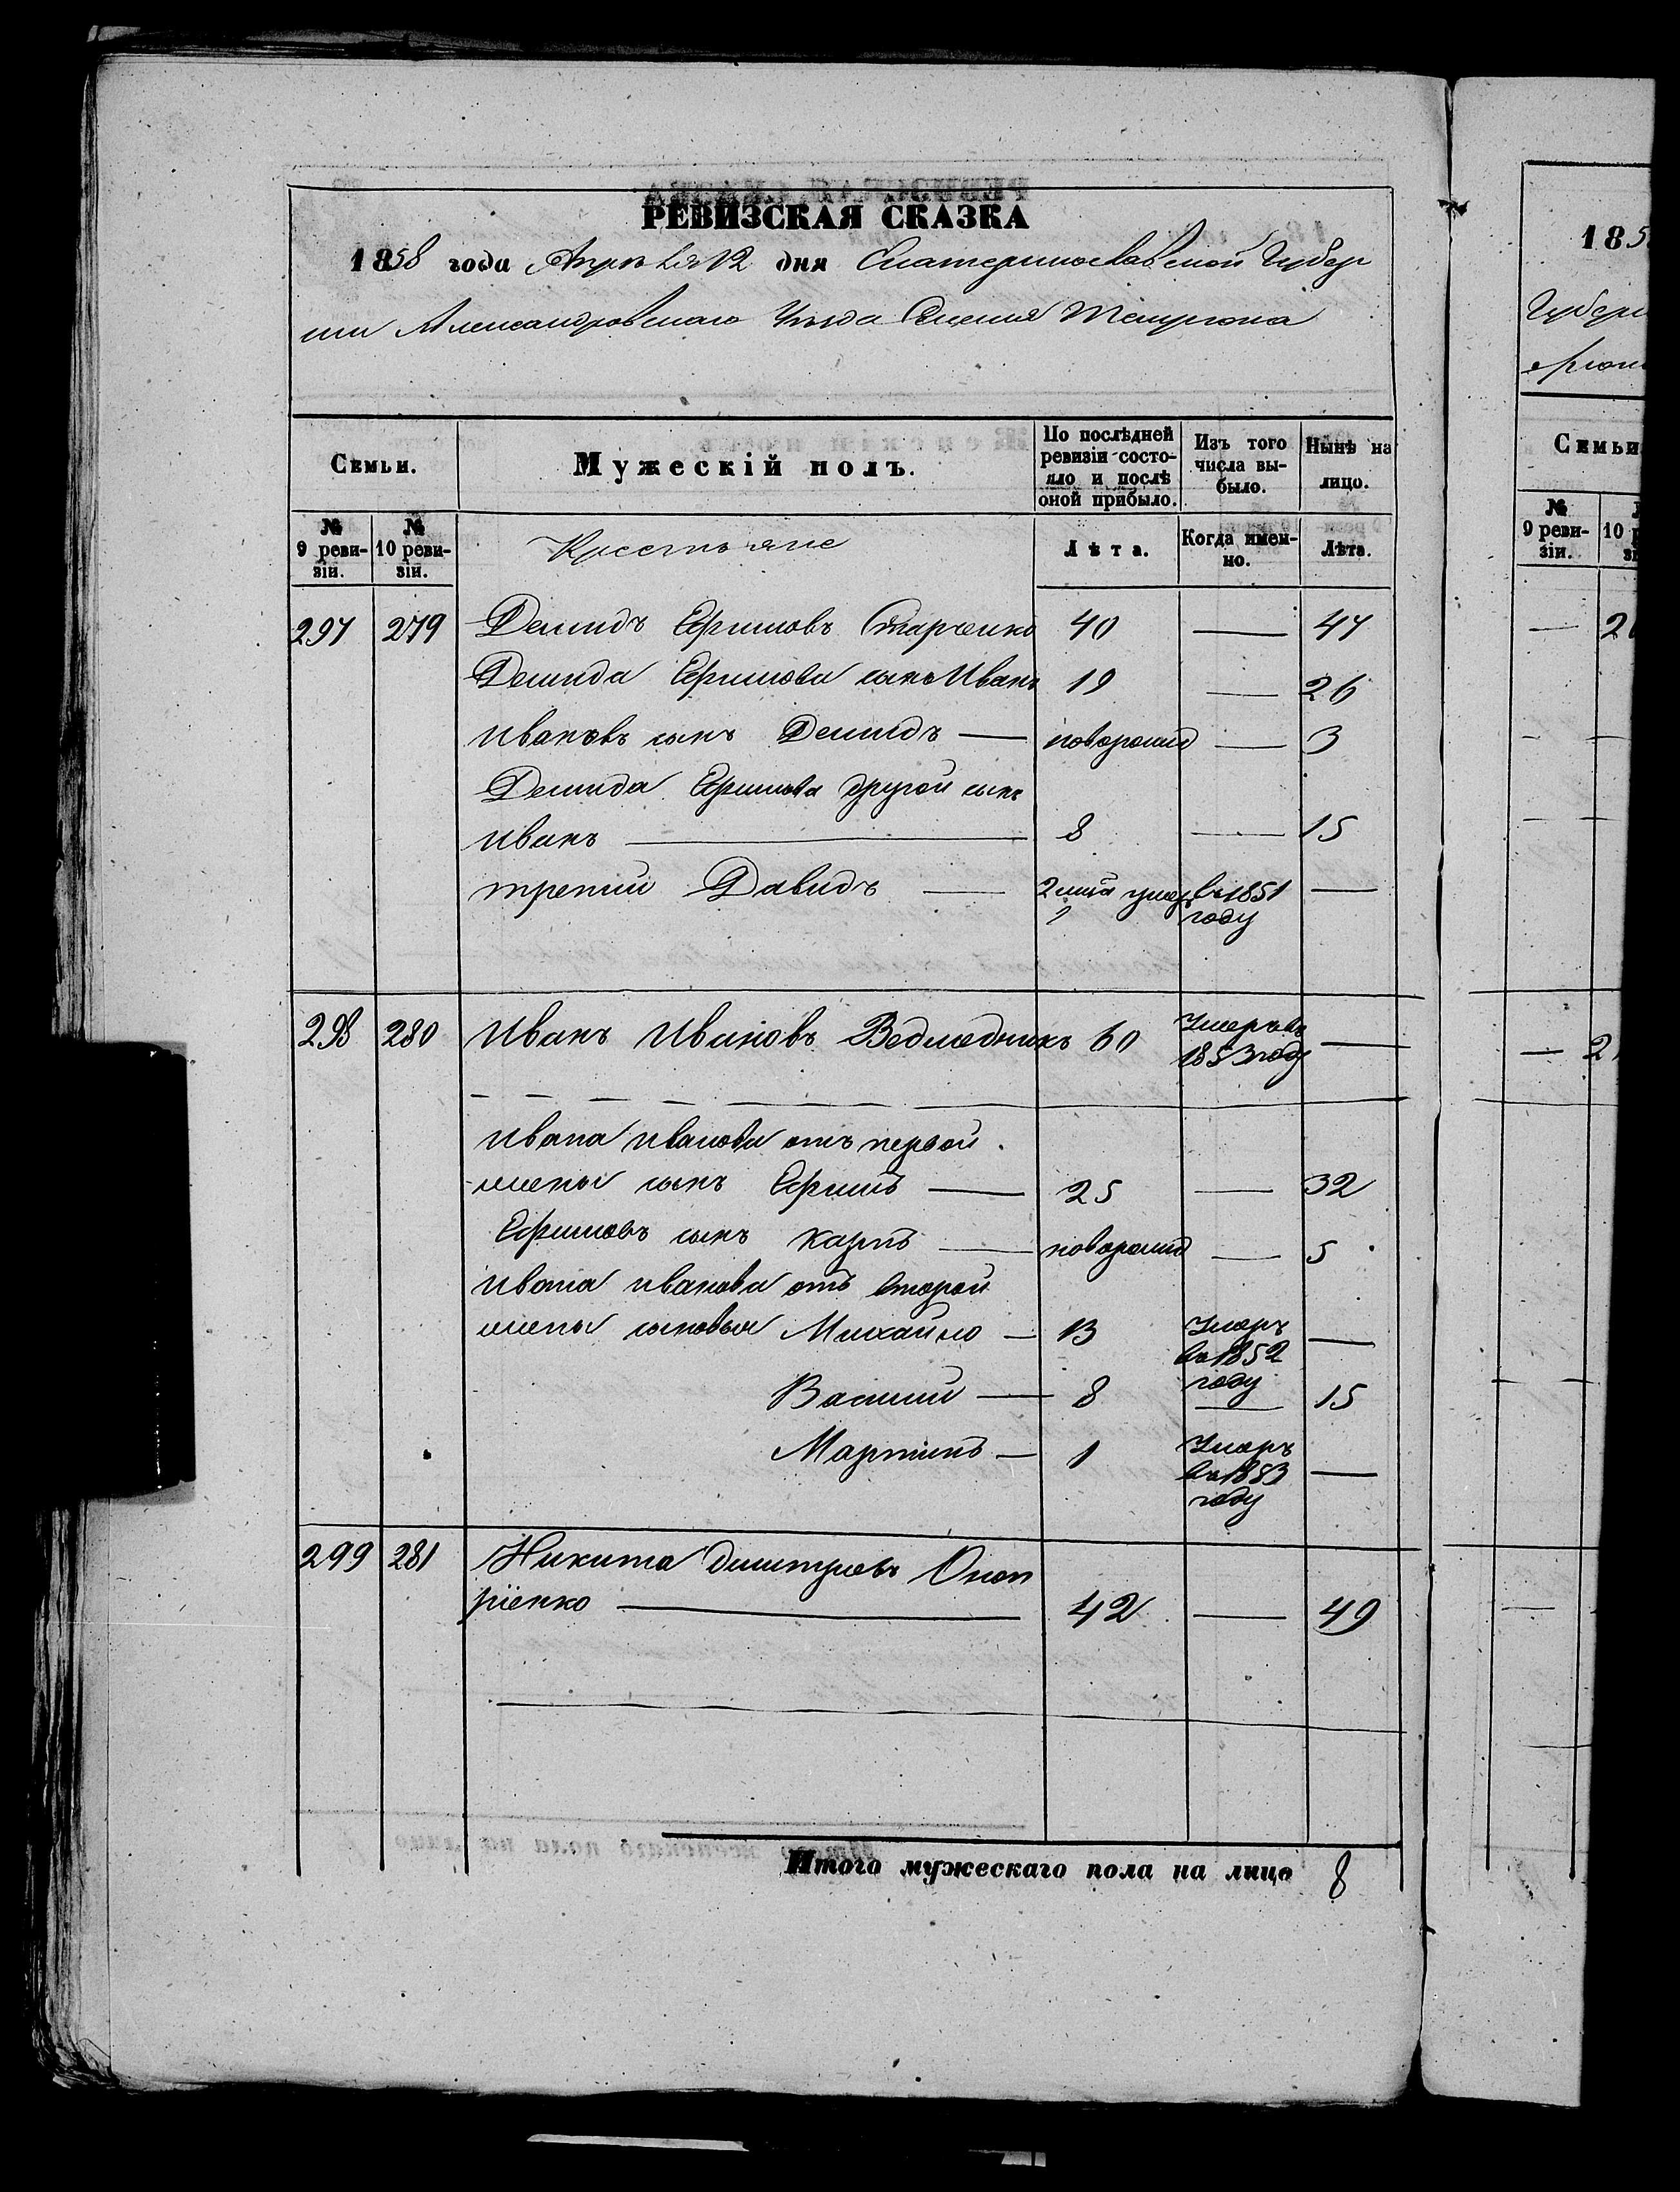 РЕВИЗСКАЯ СКАЗКА
1858 года Апрѣля 12 дня Екатеринославской Губер
нии Александровскаго Уѣзда Селения Темрюка
Семьи.
Мужескій полъ.
По послѣдней ревизіи состояло и послѣ оной прибыло.
Изъ того числа выбыло.
Нынѣ на лицо.
№ 9 ревизіи.
№ 10 ревизіи.
Крестьяне
Лѣта.
Когда именно.
Лѣта.
297 279 Демидъ Ефимовъ Старченко 40 — 47
Демида Ефимова сынъ Иванъ 19 — 26
Ивановъ сынъ Демидъ — новорожд — 3
Демида Ефимова другой сынъ
Иванъ — 8 — 15
третий Давидъ — 2 умер въ 1851 —
году
298 280 Иванъ Ивановъ Ведмедникъ 60 Умеръ въ —
1853 году
Ивана Иванова отъ первой
жены сынъ Ефимъ — 25 — 32
Ефимовъ сынъ Карпъ — новорожд — 5
Ивана Иванова отъ второй
жены сыновья Михайло — 13 Умеръ —
въ 1852
году
Василий — 8 — 15
Мартинъ — 1 Умеръ —
въ 1853
году
299 281 Никита Дмитриевъ Оноп
ріенко — 42 — 49
Итого мужескаго пола на лицо 8
185
Губерн
рюк
Семьи
№ 9 ревизіи.
10